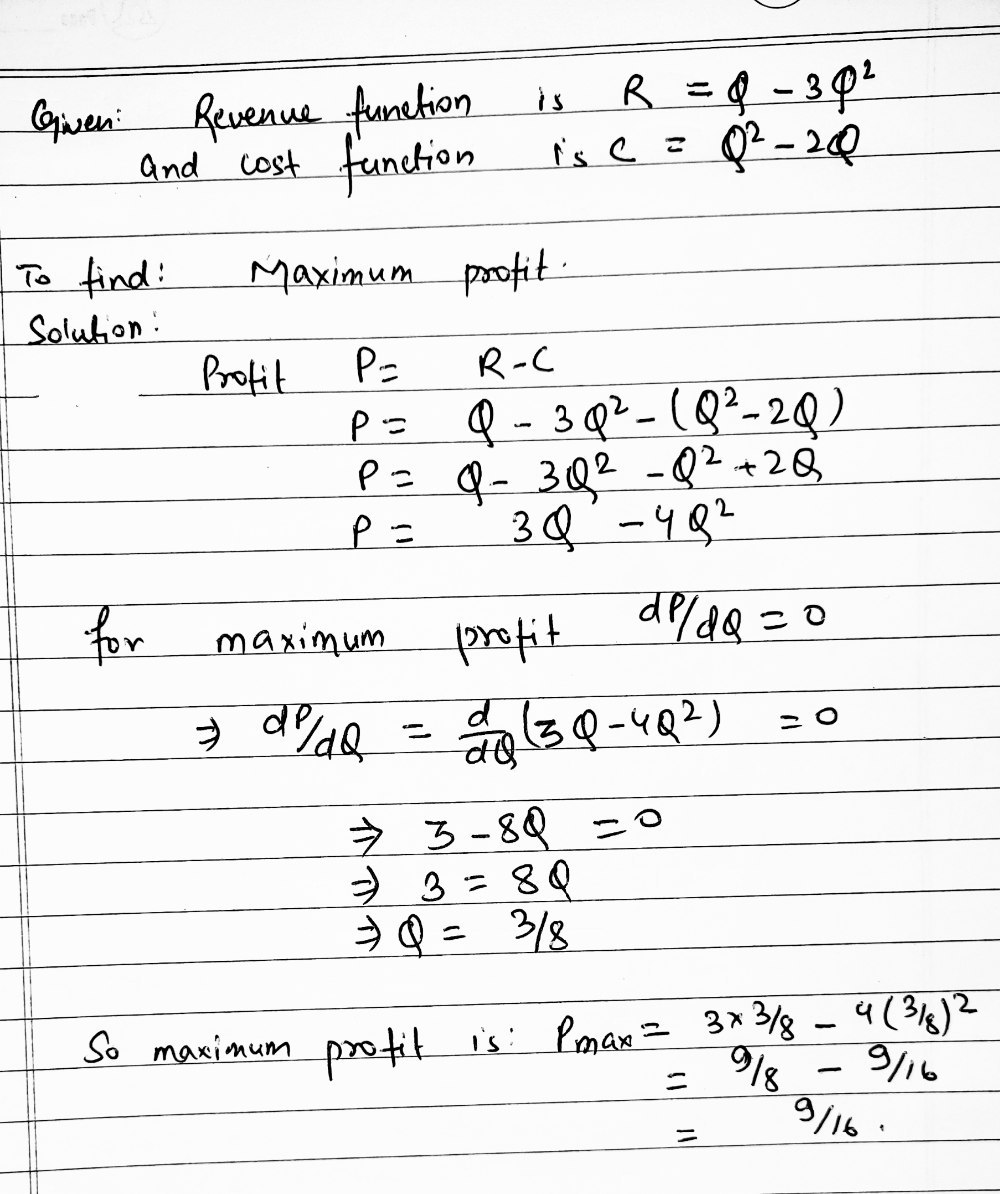 Given: Revenue function is R = Q - 3Q²
and cost function is C = Q² - 2Q
To find: Maximum profit.
Solution:
Profit P = R - C
P = Q - 3Q² - (Q² - 2Q)
P = Q - 3Q² - Q² + 2Q
P = 3Q - 4Q²
for maximum profit dP/dQ = 0
⇒ dP/dQ = d/dQ (3Q - 4Q²) = 0
⇒ 3 - 8Q = 0
⇒ 3 = 8Q
⇒ Q = 3/8
So maximum profit is: Pmax = 3 × 3/8 - 4(3/8)²
= 9/8 - 9/16
= 9/16.